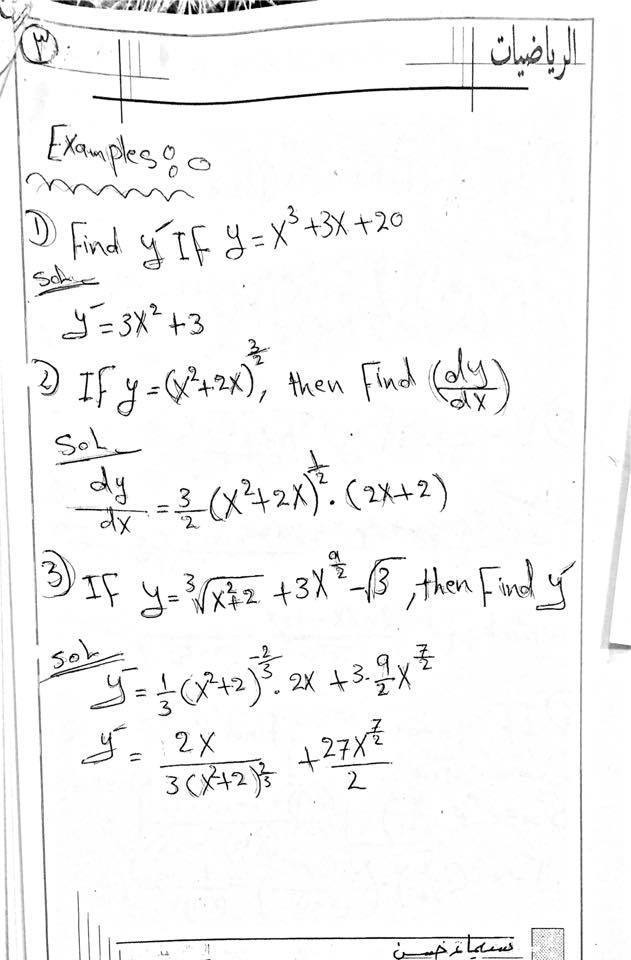 ٣
الرياضيات
Examples:
1) Find y' If y = x³ + 3x + 20
Sol.
y' = 3x² + 3
2) If y = (x² + 2x)^(3/2), then Find (dy/dx)
Sol.
dy/dx = 3/2 (x² + 2x)^(1/2) . (2x + 2)
3) If y = ³√(x² + 2) + 3x^(9/2) - √3, then Find y'
Sol
y' = 1/3 (x² + 2)^(-2/3) . 2x + 3 . 9/2 x^(7/2)
y' = 2x / 3(x² + 2)^(2/3) + 27x^(7/2) / 2